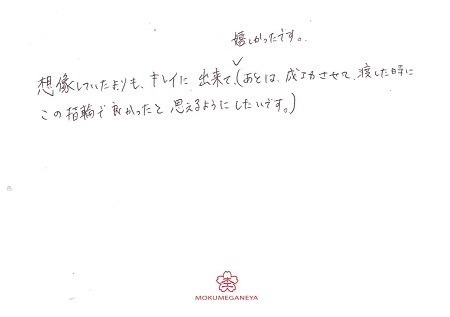 嬉しかったです。
想像していたよりも、キレイに出来て、(あとは、成功させて、渡した時に
この指輪で良かったと思えるようにしたいです。)
MOKUMEGANEYA